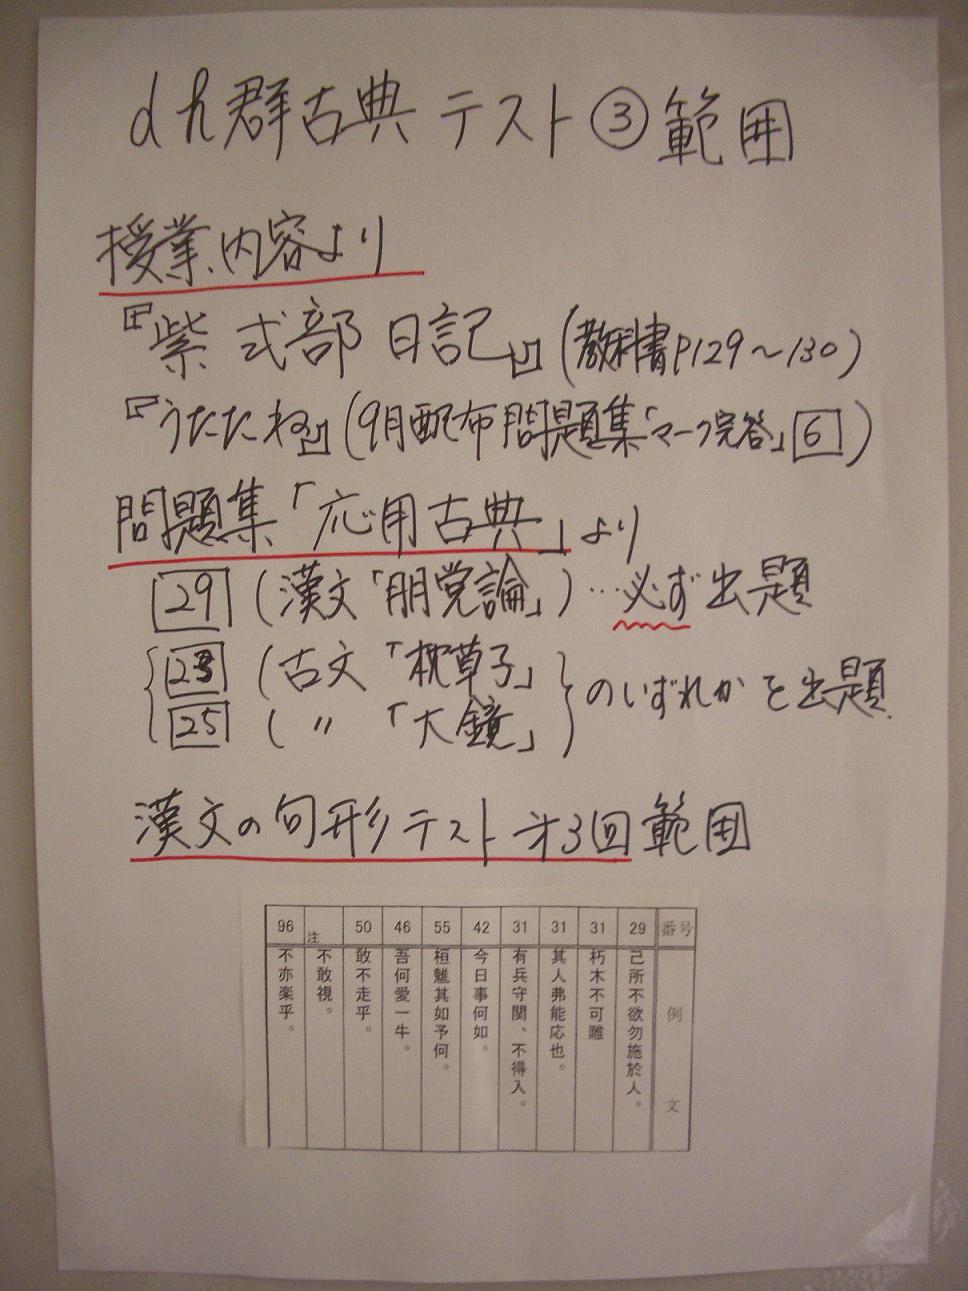 dh群古典テスト③範囲
授業内容より
『紫式部日記』(教科書P129～130)
『うたたね』(9月配布問題集「マーク完答」6)
問題集「応用古典」より
29 (漢文「朋党論」)…必ず出題
23 (古文「枕草子」
25 (〃「大鏡」
のいずれかを出題
漢文の句形テスト才3回範囲
番号 例文
29 己所不欲勿施於人。
31 朽木不可雕
31 其人弗能応也。
31 有兵守関、不得入。
42 今日事何如。
55 桓魋其如予何。
46 吾何愛一牛。
50 敢不走乎。
注 不敢視。
96 不亦楽乎。